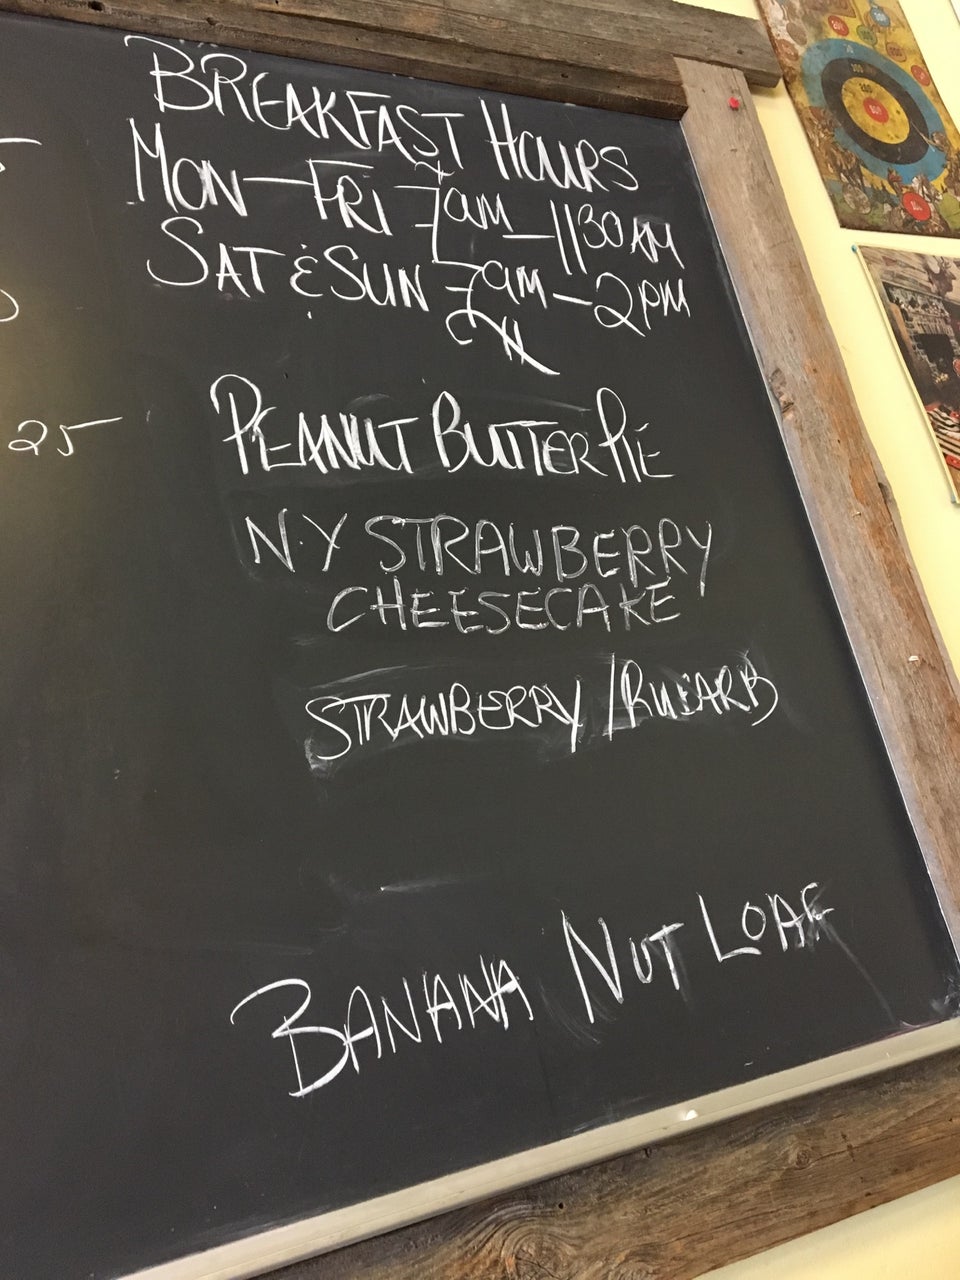 BREAKFAST HOURS
MON-FRI 7am-1130AM
SAT & SUN 7am-2PM
PEANUT BUTTER PIE
N.Y STRAWBERRY
CHEESECAKE
STRAWBERRY/RUBARB
BANANA NUT LOAF
25